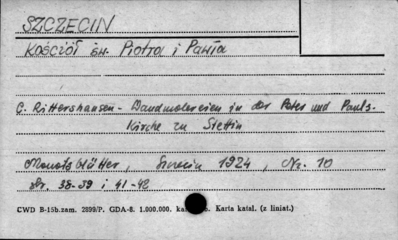 SZCZECIN
Kościół św. Piotra i Pawła
C. Rittershausen - Wandmalereien in der Peter und Pauls-
Kirche zu Stettin
Monatsblätter, Szczecin 1924, Nr. 10
str. 38-39 i 41-42
CWD B-15b.zam. 2899/P. GDA-8. 1.000.000. Karta katal. (z liniat.)